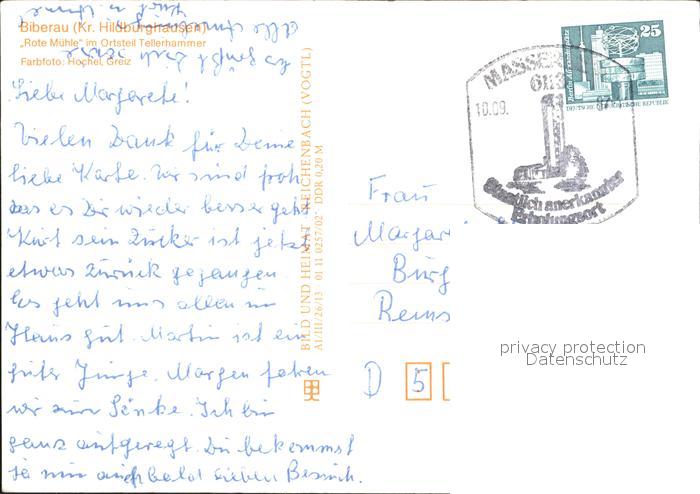 Biberau (Kr. Hildburghausen)
„Rote Mühle" im Ortsteil Tellerhammer
Farbfoto: Hochel, Greiz
Liebe Margarete!
Vielen Dank für Deine
liebe Karte. Wir sind froh
das es Dir wieder besser geht
Kurt sein Zucker ist jetzt
etwas zurück gegangen.
Es geht uns allen im
Haus gut. Martin ist ein
guter Junge. Morgen fahren
wir zur Ich bin
ganz aufgeregt. Du bekommst
ja nun auch bald lieben Besuch.
BILD UND HEIMAT REICHENBACH (VOGTL)
A1/III/26/13 01 11 0257/02 DDR 0,20 M
25
DEUTSCHE DEMOKRATISCHE REPUBLIK
MASSER
10.09.
Staatlich anerkannter
Erholungsort
Frau
Margar
Bürg
Rems
D 5
privacy protection
Datenschutz